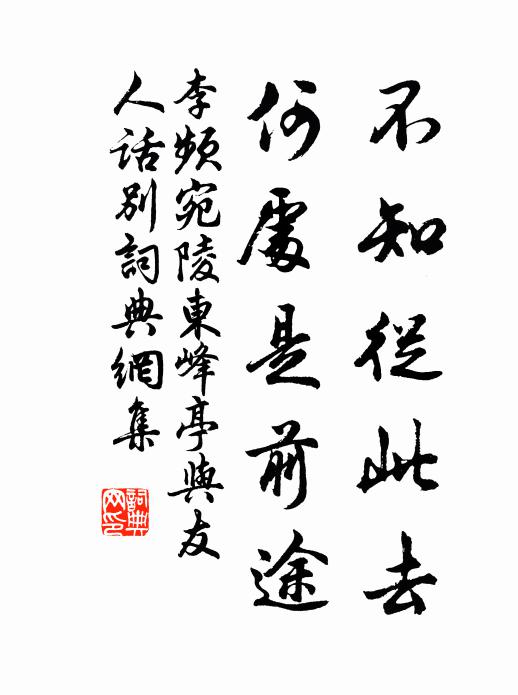 不知從此去
何處是前途
李頻宛陵東峰亭與友
人話別詞典網集
詞典
网印